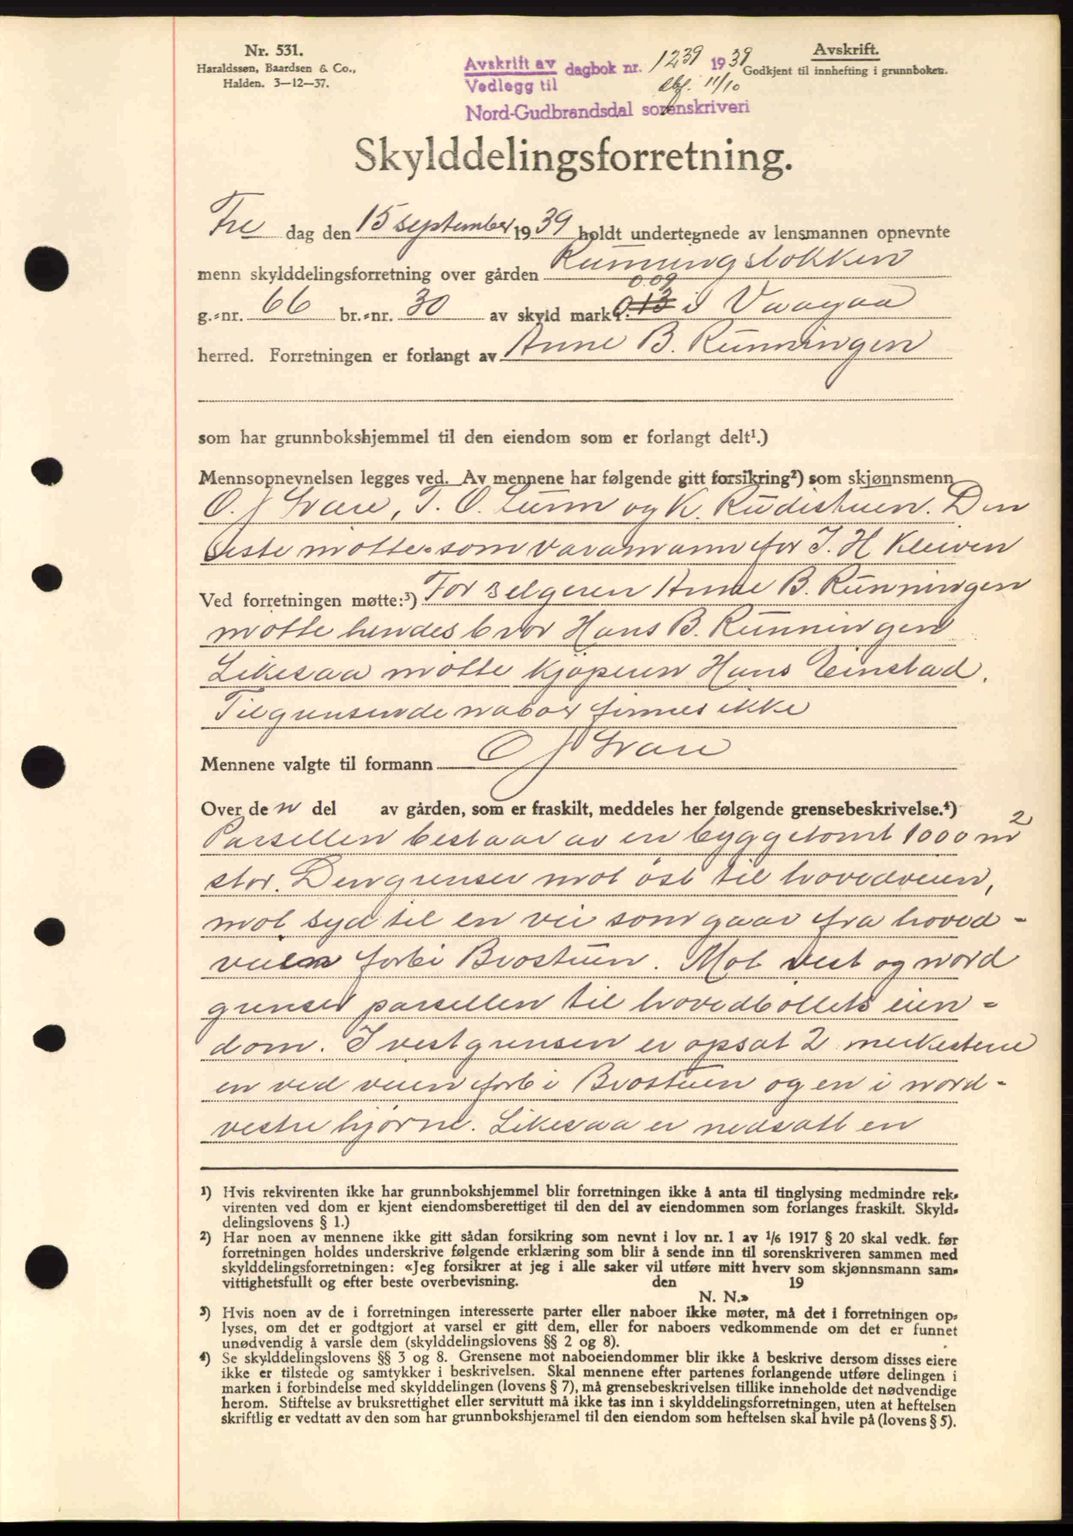 Nr. 531.
Haraldssøn, Baardsen & Co.,
Halden. 3—12—37.
Avskrift av dagbok nr. 1239 1939
Vedlegg til
dbf. 11/10
Nord-Gudbrandsdal sorenskriveri
Avskrift.
Godkjent til innhefting i grunnboken.
Skylddelingsforretning.
Fre dag den 15 september 1939 holdt undertegnede av lensmannen opnevnte
menn skylddelingsforretning over gården Runningslokken
g.-nr. 66 br.-nr. 30 av skyld mark 0.13 0.09 i Vaagaa
herred. Forretningen er forlangt av Anne B. Runningen
som har grunnbokshjemmel til den eiendom som er forlangt delt¹.)
Mennsopnevnelsen legges ved. Av mennene har følgende gitt forsikring²) som skjønnsmenn
O. J Svare, T. O. Sunn og K. Rudistuen. Den
siste møtte som varamann for I. H Kleiven
Ved forretningen møtte:³) For selgeren Anne B. Runningen
møtte hendes bror Hans B. Runningen
Likesaa møtte kjøperen Hans Einstad.
Tilgrensende naboer finnes ikke
Mennene valgte til formann O J Svare
Over den del av gården, som er fraskilt, meddeles her følgende grensebeskrivelse.⁴)
Parsellen bestaar av en byggetomt 1000 m²
stor. Den grenser mot øst til hovedveien,
mot syd til en vei som gaar fra hoved-
veien forbi Brostuen. Mot vest og nord
grenser parsellen til hovedbøllets eien-
dom. I vestgrensen er opsat 2 merkestene
en ved veien forbi Brostuen og en i nord-
vestre hjørne. Likesaa er nedsatt en
¹) Hvis rekvirenten ikke har grunnbokshjemmel blir forretningen ikke å anta til tinglysing medmindre rek-
virenten ved dom er kjent eiendomsberettiget til den del av eiendommen som forlanges fraskilt. Skyld-
delingslovens § 1.)
²) Har noen av mennene ikke gitt sådan forsikring som nevnt i lov nr. 1 av 1/6 1917 § 20 skal vedk. før
forretningen holdes underskrive følgende erklæring som blir å sende inn til sorenskriveren sammen med
skylddelingsforretningen: «Jeg forsikrer at jeg i alle saker vil utføre mitt hverv som skjønnsmann sam-
vittighetsfullt og efter beste overbevisning. den 19
N. N.»
³) Hvis noen av de i forretningen interesserte parter eller naboer ikke møter, må det i forretningen op-
lyses, om det er godtgjort at varsel er gitt dem, eller for naboers vedkommende om det er funnet
unødvendig å varsle dem (skylddelingslovens §§ 2 og 8).
⁴) Se skylddelingslovens §§ 3 og 8. Grensene mot naboeiendommer blir ikke å beskrive dersom disses eiere
ikke er tilstede og samtykker i beskrivelsen. Skal mennene efter partenes forlangende utføre delingen i
marken i forbindelse med skylddelingen (lovens § 7), må grensebeskrivelsen tillike inneholde det nødvendige
herom. Stiftelse av bruksrettighet eller servitutt må ikke tas inn i skylddelingsforretningen, uten at heftelsen
skriftlig er vedtatt av den som har grunnbokshjemmel til den eiendom som heftelsen skal hvile på (lovens § 5).